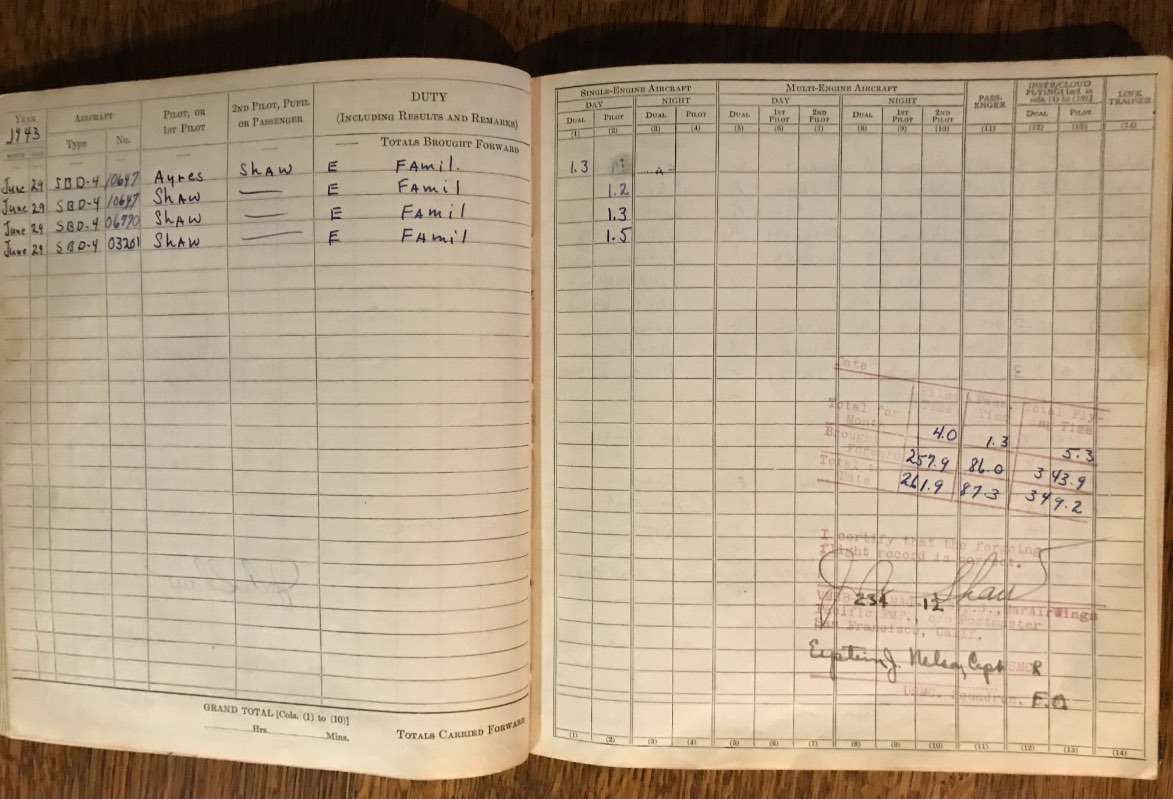 YEAR AIRCRAFT PILOT, OR 1ST PILOT 2ND PILOT, PUPIL OR PASSENGER DUTY (INCLUDING RESULTS AND REMARKS)
1943
MONTH DATE Type No.
TOTALS BROUGHT FORWARD
June 29 SBD-4 10647 Ayres SHAW E FAmil.
June 29 SBD-4 10647 SHAW — E FAmil
June 29 SBD-4 06770 SHAW — E FAmil
June 29 SBD-4 03261 SHAW — E FAmil
GRAND TOTAL [Cols. (1) to (10)]
Hrs. Mins.
TOTALS CARRIED FORWARD
SINGLE-ENGINE AIRCRAFT MULTI-ENGINE AIRCRAFT PASS-ENGER INSTR/CLOUD FLYING [Incl. in cols. (1) to (10)] LINK TRAINER
DAY NIGHT DAY NIGHT
DUAL PILOT DUAL PILOT DUAL 1ST PILOT 2ND PILOT DUAL 1ST PILOT 2ND PILOT DUAL PILOT
(1) (2) (3) (4) (5) (6) (7) (8) (9) (10) (11) (12) (13) (14)
1.3
1.2
1.3
1.5
Date
Pilot Time Pass. Time Total Fly-ing Time
Total for Month 4.0 1.3 5.3
Brought Forward 257.9 86.0 343.9
Total to Date 261.9 87.3 349.2
I certify that the forgoing
flight record is correct.
Shaw
234 12 MarAirWings
Pacific c/o Postmaster
San Francisco, Calif.
J. Nelson Capt USMCR
(1) (2) (3) (4) (5) (6) (7) (8) (9) (10) (11) (12) (13) (14)